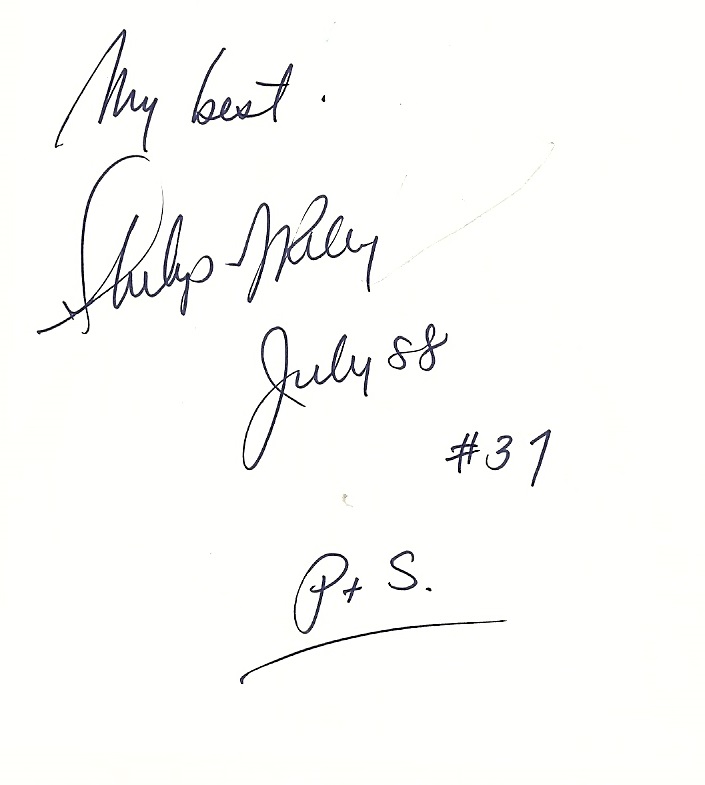 My best.
Philip
July 88
#37
P + S.